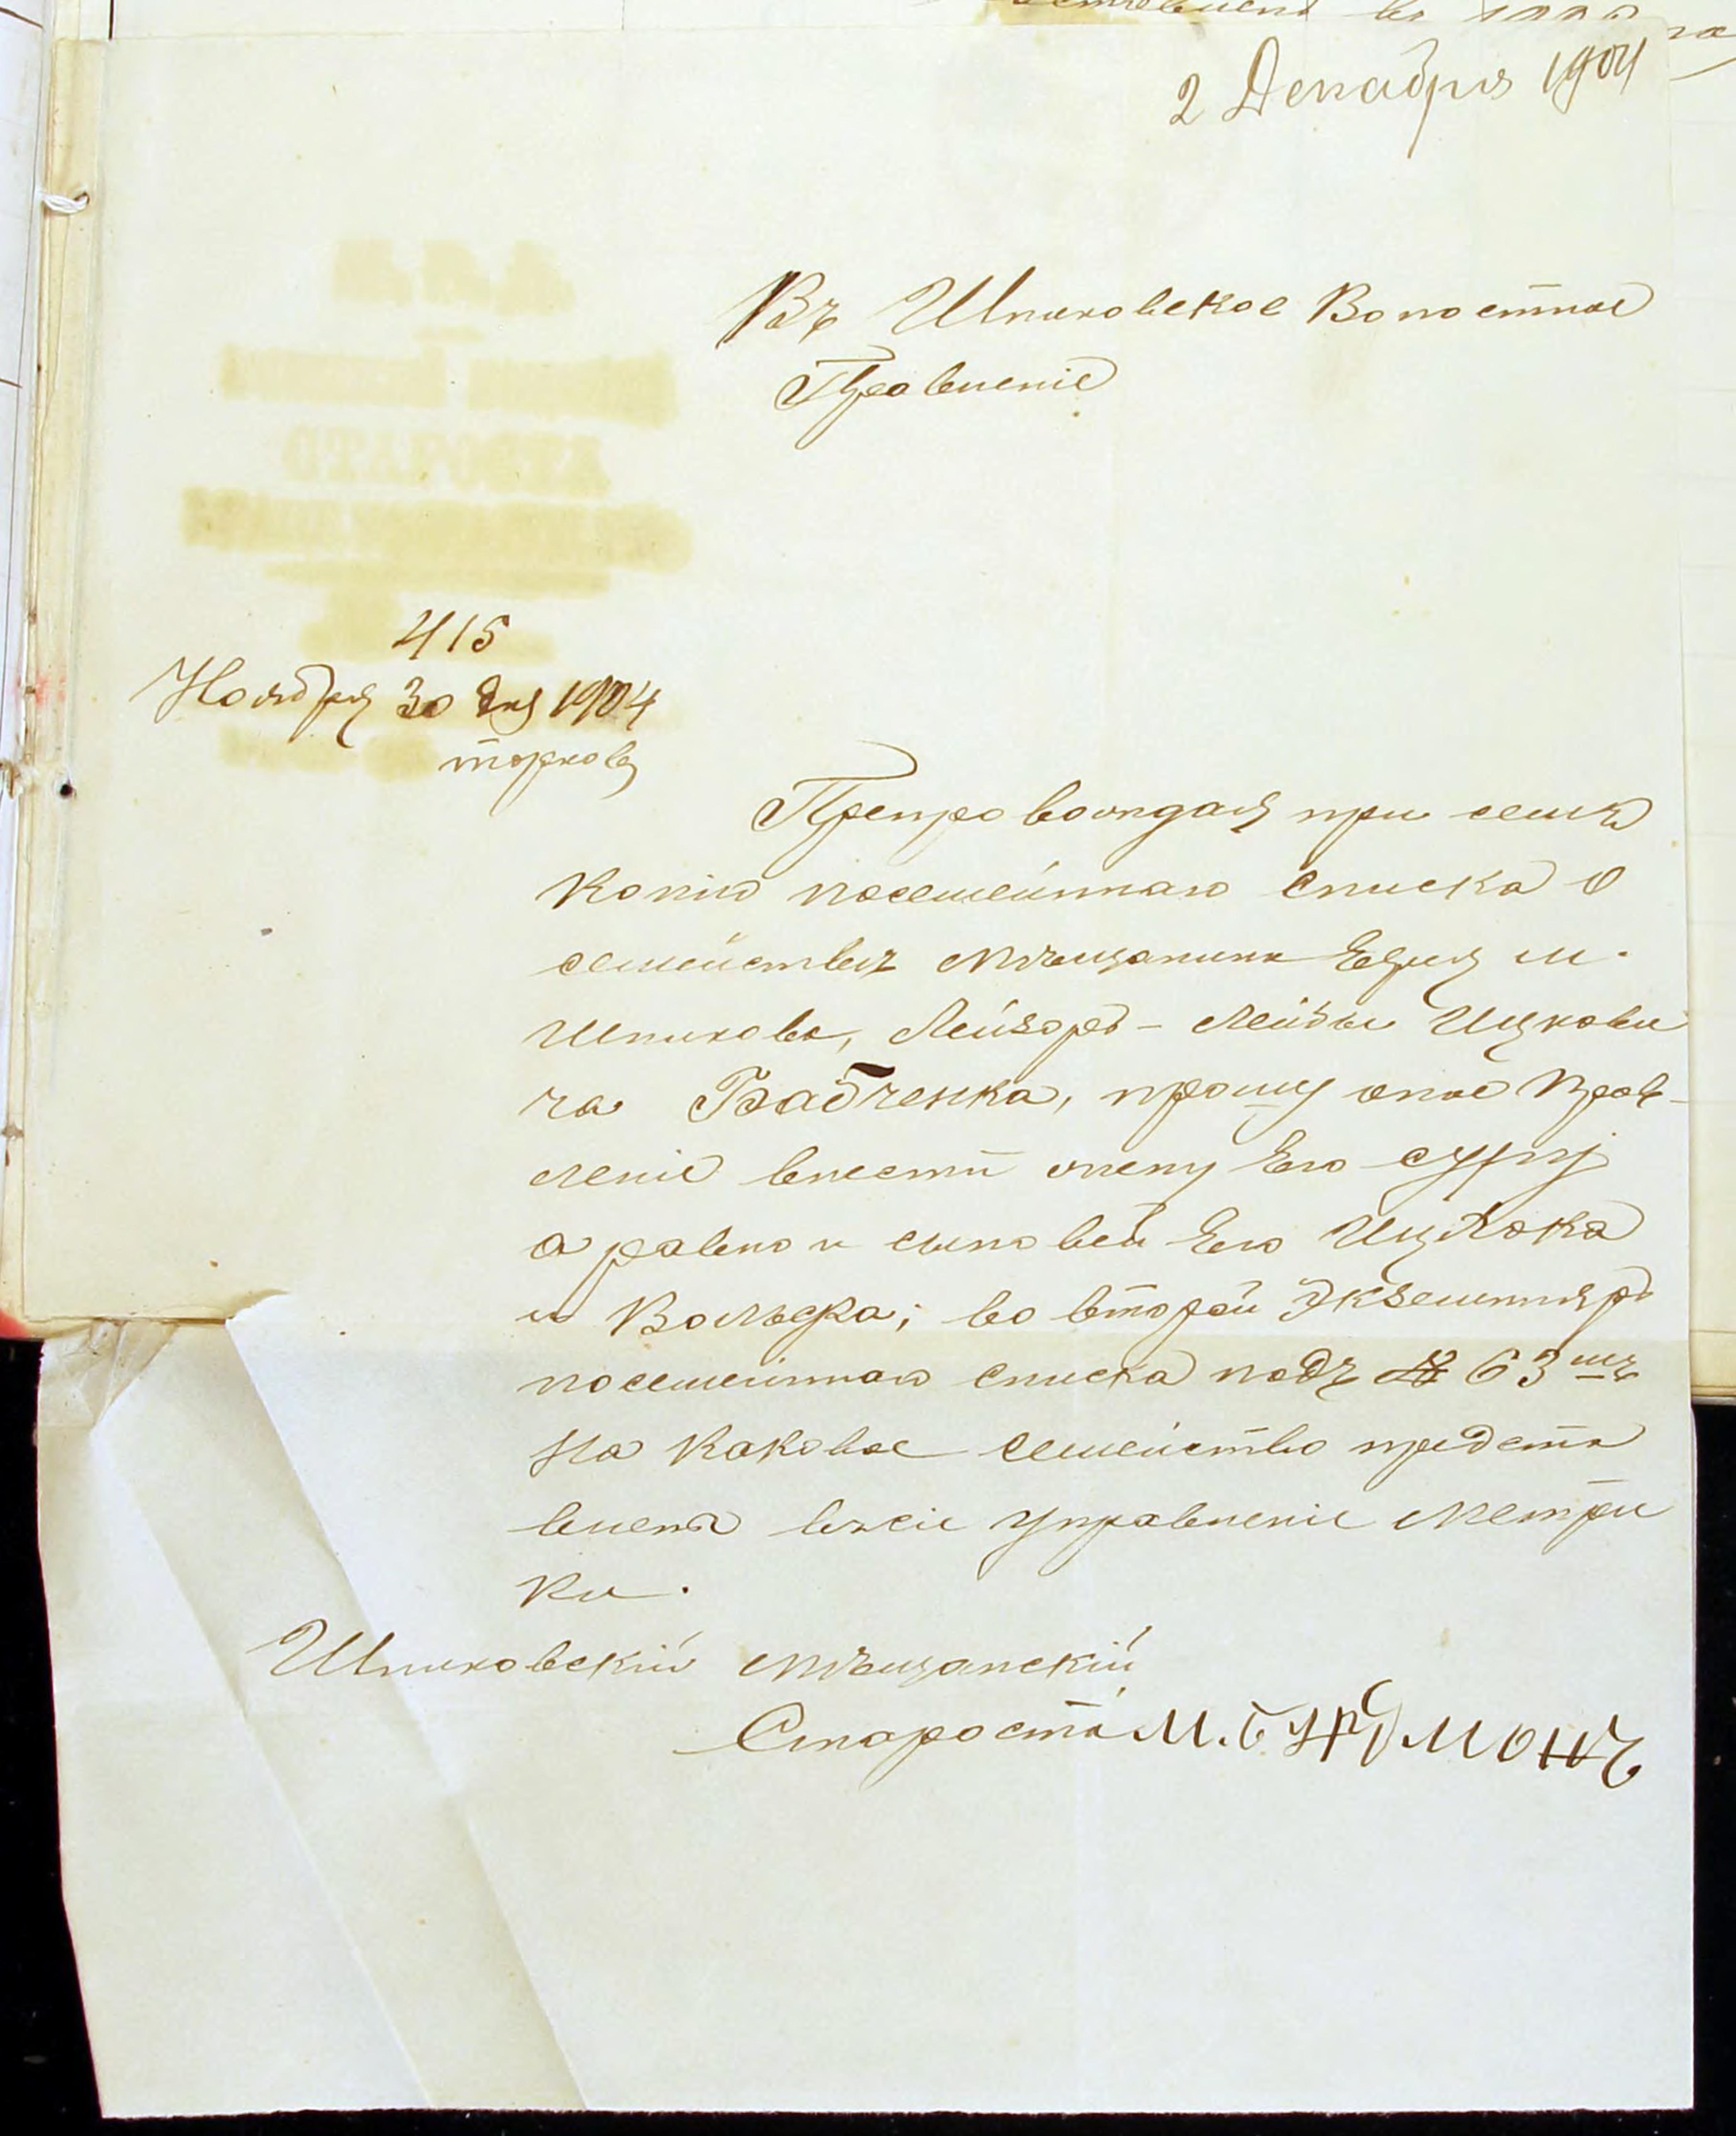 2 Декабря 1904
Въ Шпиковское Волостное
Правленіе
415
Ноября 30 дня 1904
Препровождая при семъ
Копію посемейнаго списка о
семействѣ мѣщанина Еврея м.
Шпикова, Лейзоръ-Лейбы Ицкови
ча Бабченка, прошу оное Прав-
леніе внести Его
а равно и сыновей Его Ицхока
и Вольфа; во второй Экземпляръ
посемейнаго списка подъ № 63мъ
На каковое семейство предста
влены въ сіе Управленіе метри
ки.
Шпиковскій мѣщанскій
Староста М.